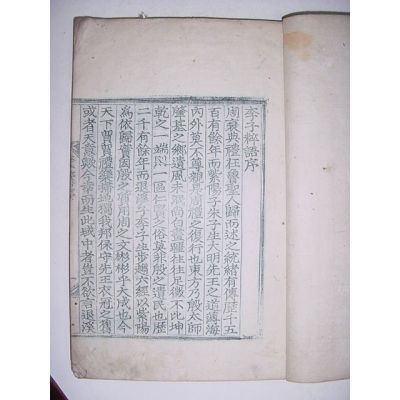 李子粹語序
周衰典禮在魯聖人歸而述之統緒有傳歷千五
百有餘年而紫陽朱子生大明先王之道薄海
內外莫不尊親焉周禮之復行也東方乃殷太師
肇基之鄉遺風未泯尚白之雖往往足徵不比坤
乾之一端則一區仁賢之俗莫非殷之遺民也歷
二千有餘年而退溪子李子生步趨六經以紫陽
為依歸實因殷之質用周之文彬彬乎大成也今
天下貿貿禮樂地獨我邦保守先王衣冠之舊
或者天意歟今幸而生此域中者豈不欲言退溪